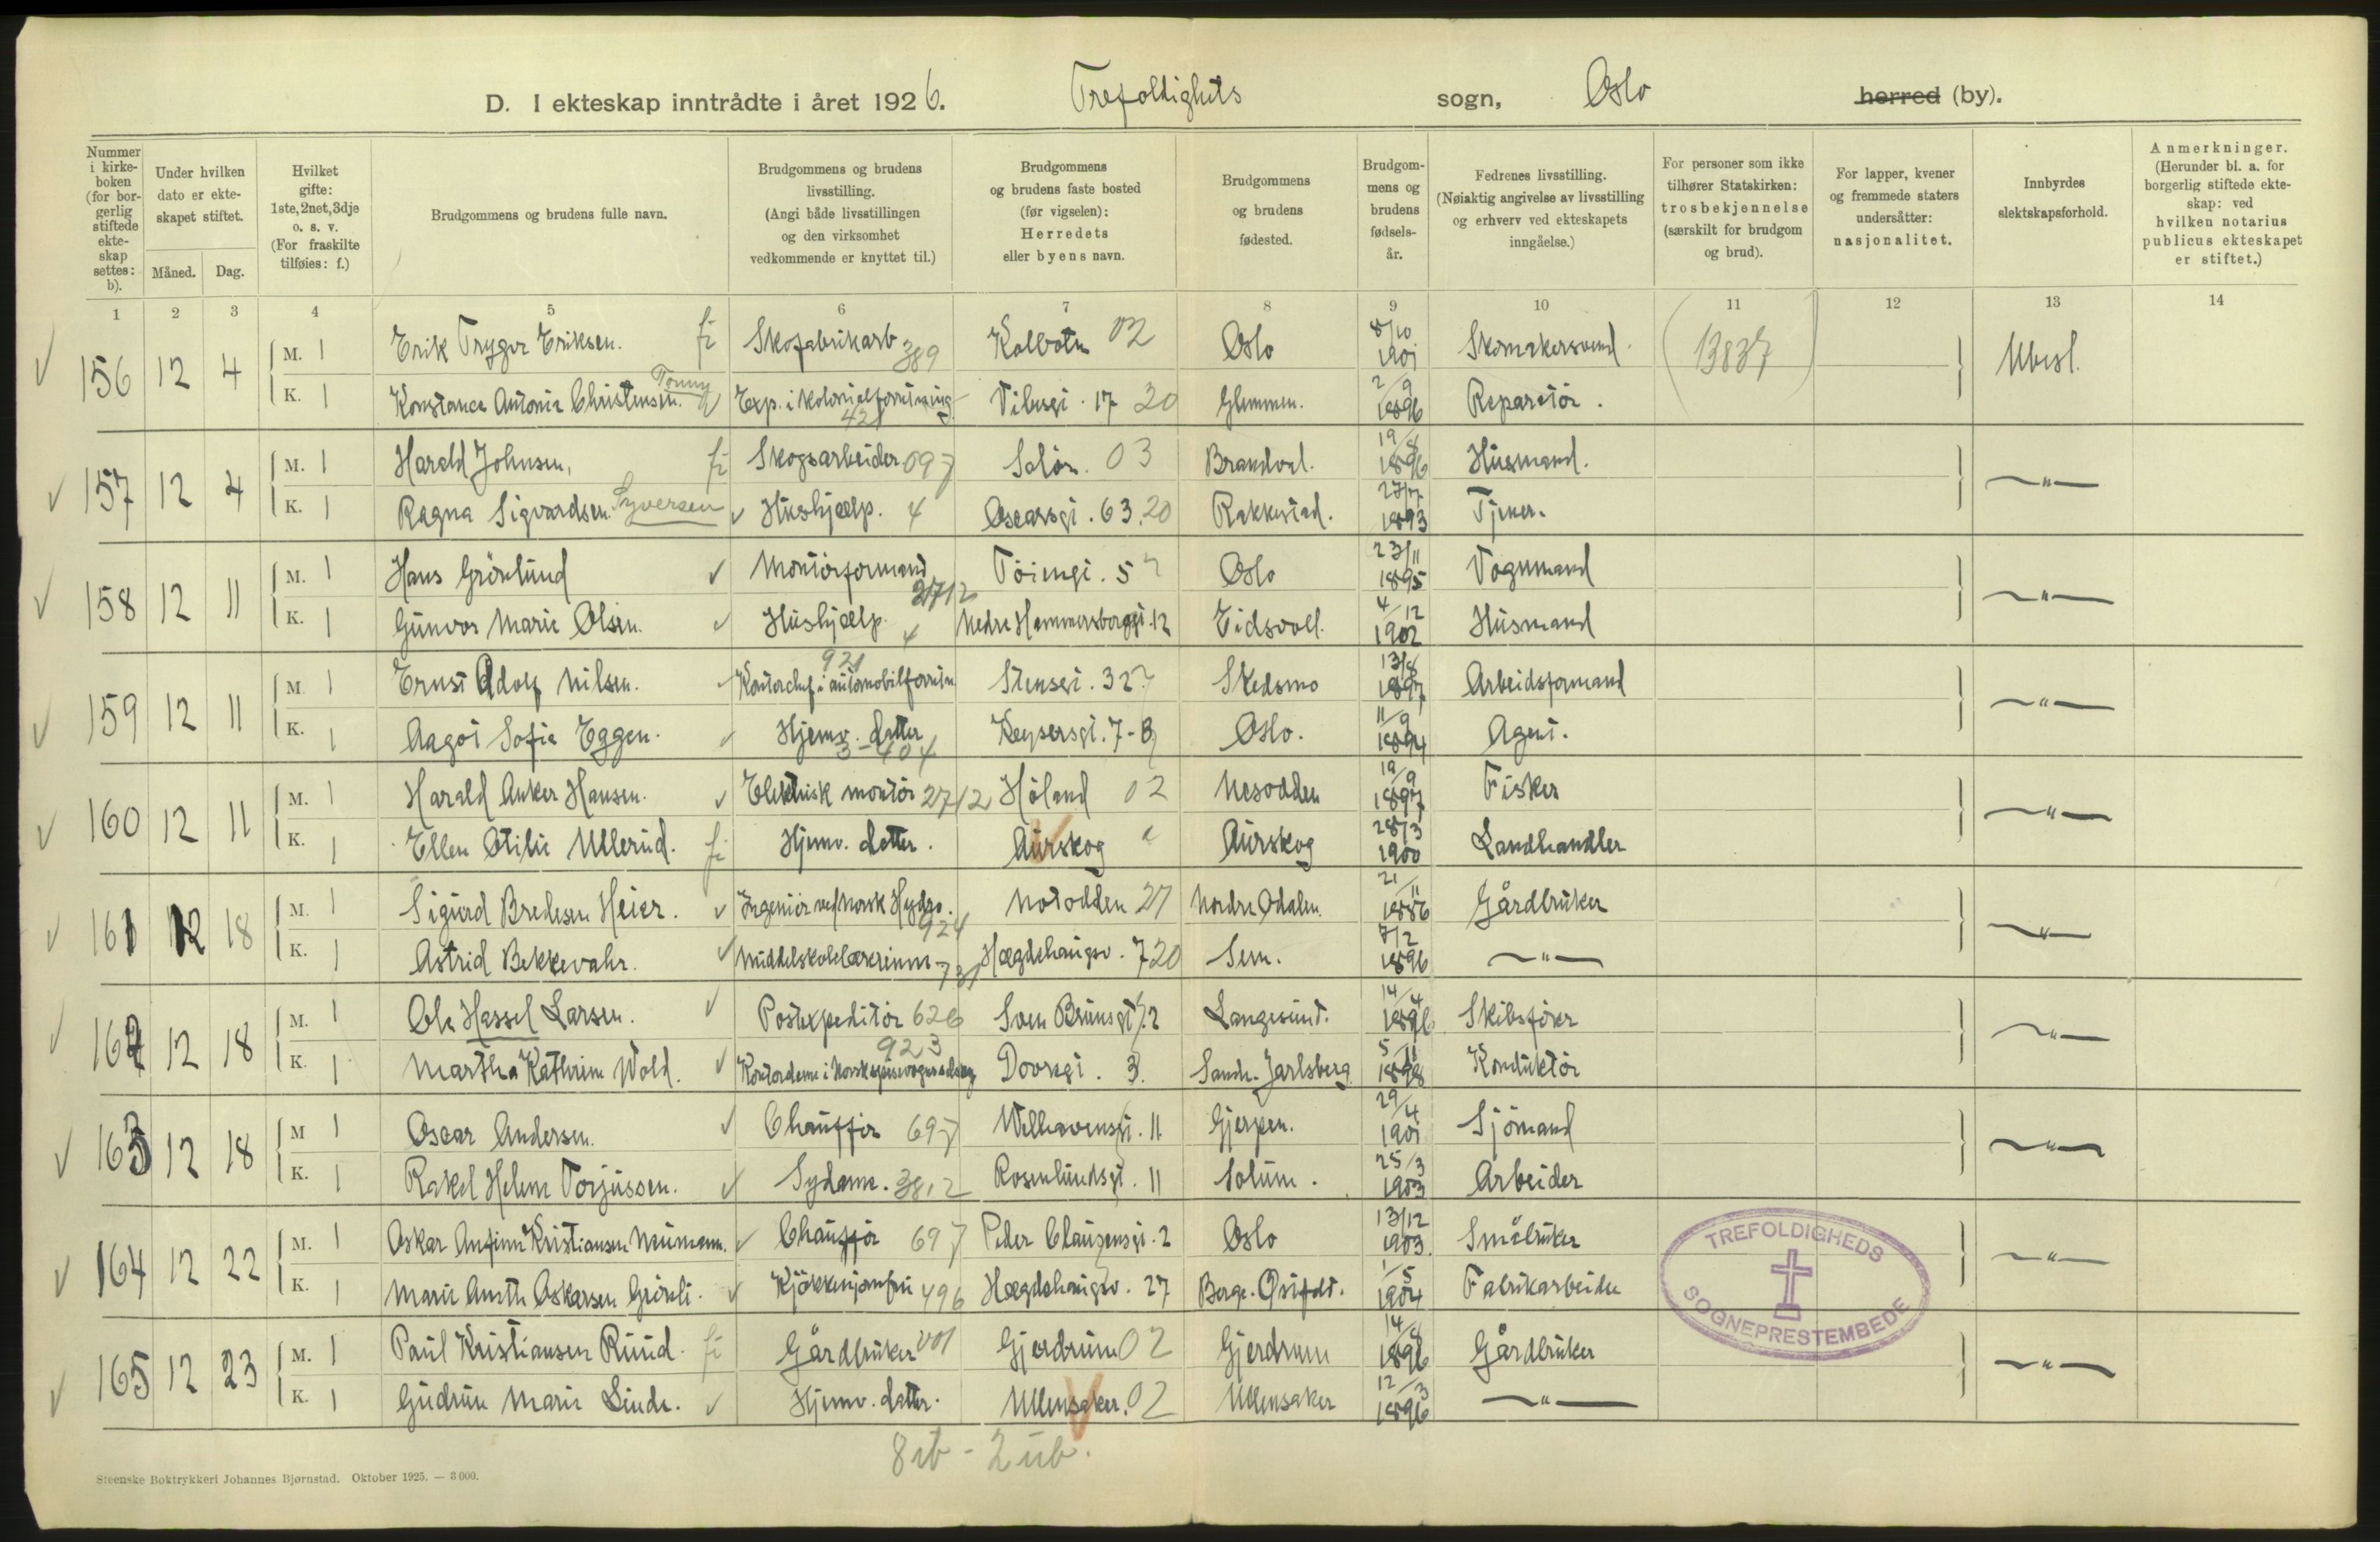 D. I ekteskap inntrådte i året 1926. Trefoldighets sogn, Oslo herred (by).
Nummer i kirkeboken (for borgerlig stiftede ekteskap settes: b).
Under hvilken dato er ekteskapet stiftet.
Måned. Dag.
Hvilket gifte: 1ste, 2net, 3dje o. s. v. (For fraskilte tilføies: f.)
Brudgommens og brudens fulle navn.
Brudgommens og brudens livsstilling. (Angi både livsstillingen og den virksomhet vedkommende er knyttet til.)
Brudgommens og brudens faste bosted (før vigselen): Herredets eller byens navn.
Brudgommens og brudens fødested.
Brudgommens og brudens fødselsår.
Fedrenes livsstilling. (Nøiaktig angivelse av livsstilling og erhverv ved ekteskapets inngåelse.)
For personer som ikke tilhører Statskirken: trosbekjennelse (særskilt for brudgom og brud).
For lapper, kvener og fremmede staters undersåtter: nasjonalitet.
Innbyrdes slektskapsforhold.
Anmerkninger. (Herunder bl. a. for borgerlig stiftede ekteskap: ved hvilken notarius publicus ekteskapet er stiftet.)
1 2 3 4 5 6 7 8 9 10 11 12 13 14
156 12 4 M. 1 Erik Trygve Eriksen. fi Skofabrikarb 389 Kolbotn 02 Oslo 8/10 1901 Skomakersvend. (13837) Ubesl.
K. 1 Konstance Antonie Christensen. Tonny Exp. i kolonialforretning 421 Vibesgt. 17 20 Glemmen. 2/9 1896 Reparatör.
157 12 4 M. 1 Harald Johnsen, fi Skogsarbeider 097 Solör. 03 Brandval. 19/8 1896 Husmand. —"—
K. 1 Ragna Sigvardsen Syversen Hushjælp. 4 Oscarsgt. 63. 20 Rakkestad. 27/7 1893 Tjener.
158 12 11 M. 1 Hans Grönlund Montörformand 2712 Töiengt. 5 Oslo 23/11 1895 Vognmand —"—
K. 1 Gunvor Marie Olsen. Hushjælp. 4 Nedre Hammersborggt. 12 Eidsvoll. 4/12 1902 Husmand
159 12 11 M. 1 Ernst Adolf Nilsen. Kontorchef i automobilforretn 921 Stensgt. 32 Skedsmo 13/8 1897 Arbeidsformand —"—
K. 1 Aagot Sofie Eggen. Hjemv. datter 3-404 Keysersgt. 7-B Oslo. 11/9 1894 Agent.
160 12 11 M. 1 Harald Anker Hansen. Elektrisk montör 2712 Höland 02 Nesodden 19/9 1897 Fisker —"—
K. 1 Ellen Otilie Ullerud. fi Hjemv. datter. Aurskog Aurskog 28/3 1900 Landhandler
161 12 18 M. 1 Sigurd Bredesen Heier. Ingeniör ved Norsk Hydro. 924 Notodden 27 Nordre Odalen. 21/11 1886 Gårdbruker —"—
K. 1 Astrid Bekkevahr. Middelskolelærerinne 731 Hægdehaugsv. 7 20 Sem. 7/2 1896 —"—
162 12 18 M. 1 Ole Hassel Larsen. Postexpeditör 626 Sven Brunsgt. 2 Langesund. 14/4 1896 Skibsförer —"—
K. 1 Martha Kathrine Wold. Kontordame i Norsk spisevognselskap 923 Dovregt. 3. Sande. Jarlsberg 5/11 1898 Konduktör
163 12 18 M 1 Oscar Andersen. Chaufför 697 Welhavensgt. 11 Gjerpen. 29/4 1901 Sjömand —"—
K. 1 Rakel Helene Torjussen. Sydame. 3812 Rosenlundsgt. 11 Solum. 25/3 1903 Arbeider
164 12 22 M. 1 Oskar Anfinn Kristiansen Neumann. Chaufför 697 Peder Clausensgt. 2 Oslo 13/12 1903. Småbruker —"—
K. 1 Marie Anethe Oskarsen Grönli. Kjökkenjomfru 496 Hægdehaugsv. 27 Berge. Östfold. 1/5 1904 Fabrikarbeider
165 12 23 M. 1 Paul Kristiansen Ruud. fi Gårdbruker 001 Gjerdrum 02 Gjerdrum 14/8 1896 Gårdbruker —"—
K. 1 Gudrun Marie Linde. Hjemv. datter. Ullensaker. 02 Ullensaker 12/3 1896 —"—
TREFOLDIGHEDS SOGNEPRESTEMBEDE
8 ib - 2 ub.
Steenske Boktrykkeri Johannes Bjørnstad. Oktober 1925. — 3 000.